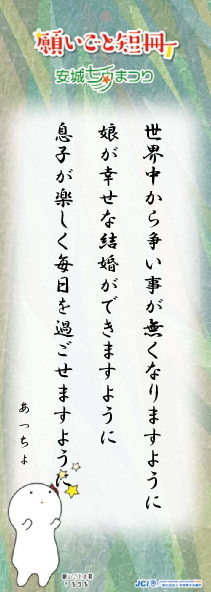 願いごと短冊
安城七夕まつり
世界中から争い事が無くなりますように
娘が幸せな結婚ができますように
息子が楽しく毎日を過ごせますように
あっちょ
JCI